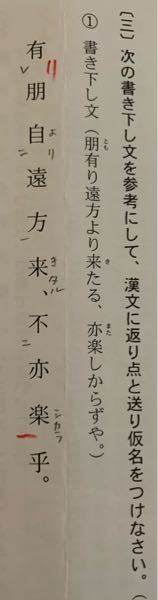 〔三〕次の書き下し文を参考にして、漢文に返り点と送り仮名をつけなさい。(
① 書き下し文(朋有り遠方より来たる、亦楽しからずや。)
とも
き
また
有朋自遠方来、不亦楽乎。
リ
レ
より
二
一
タル
ニ
シカラ